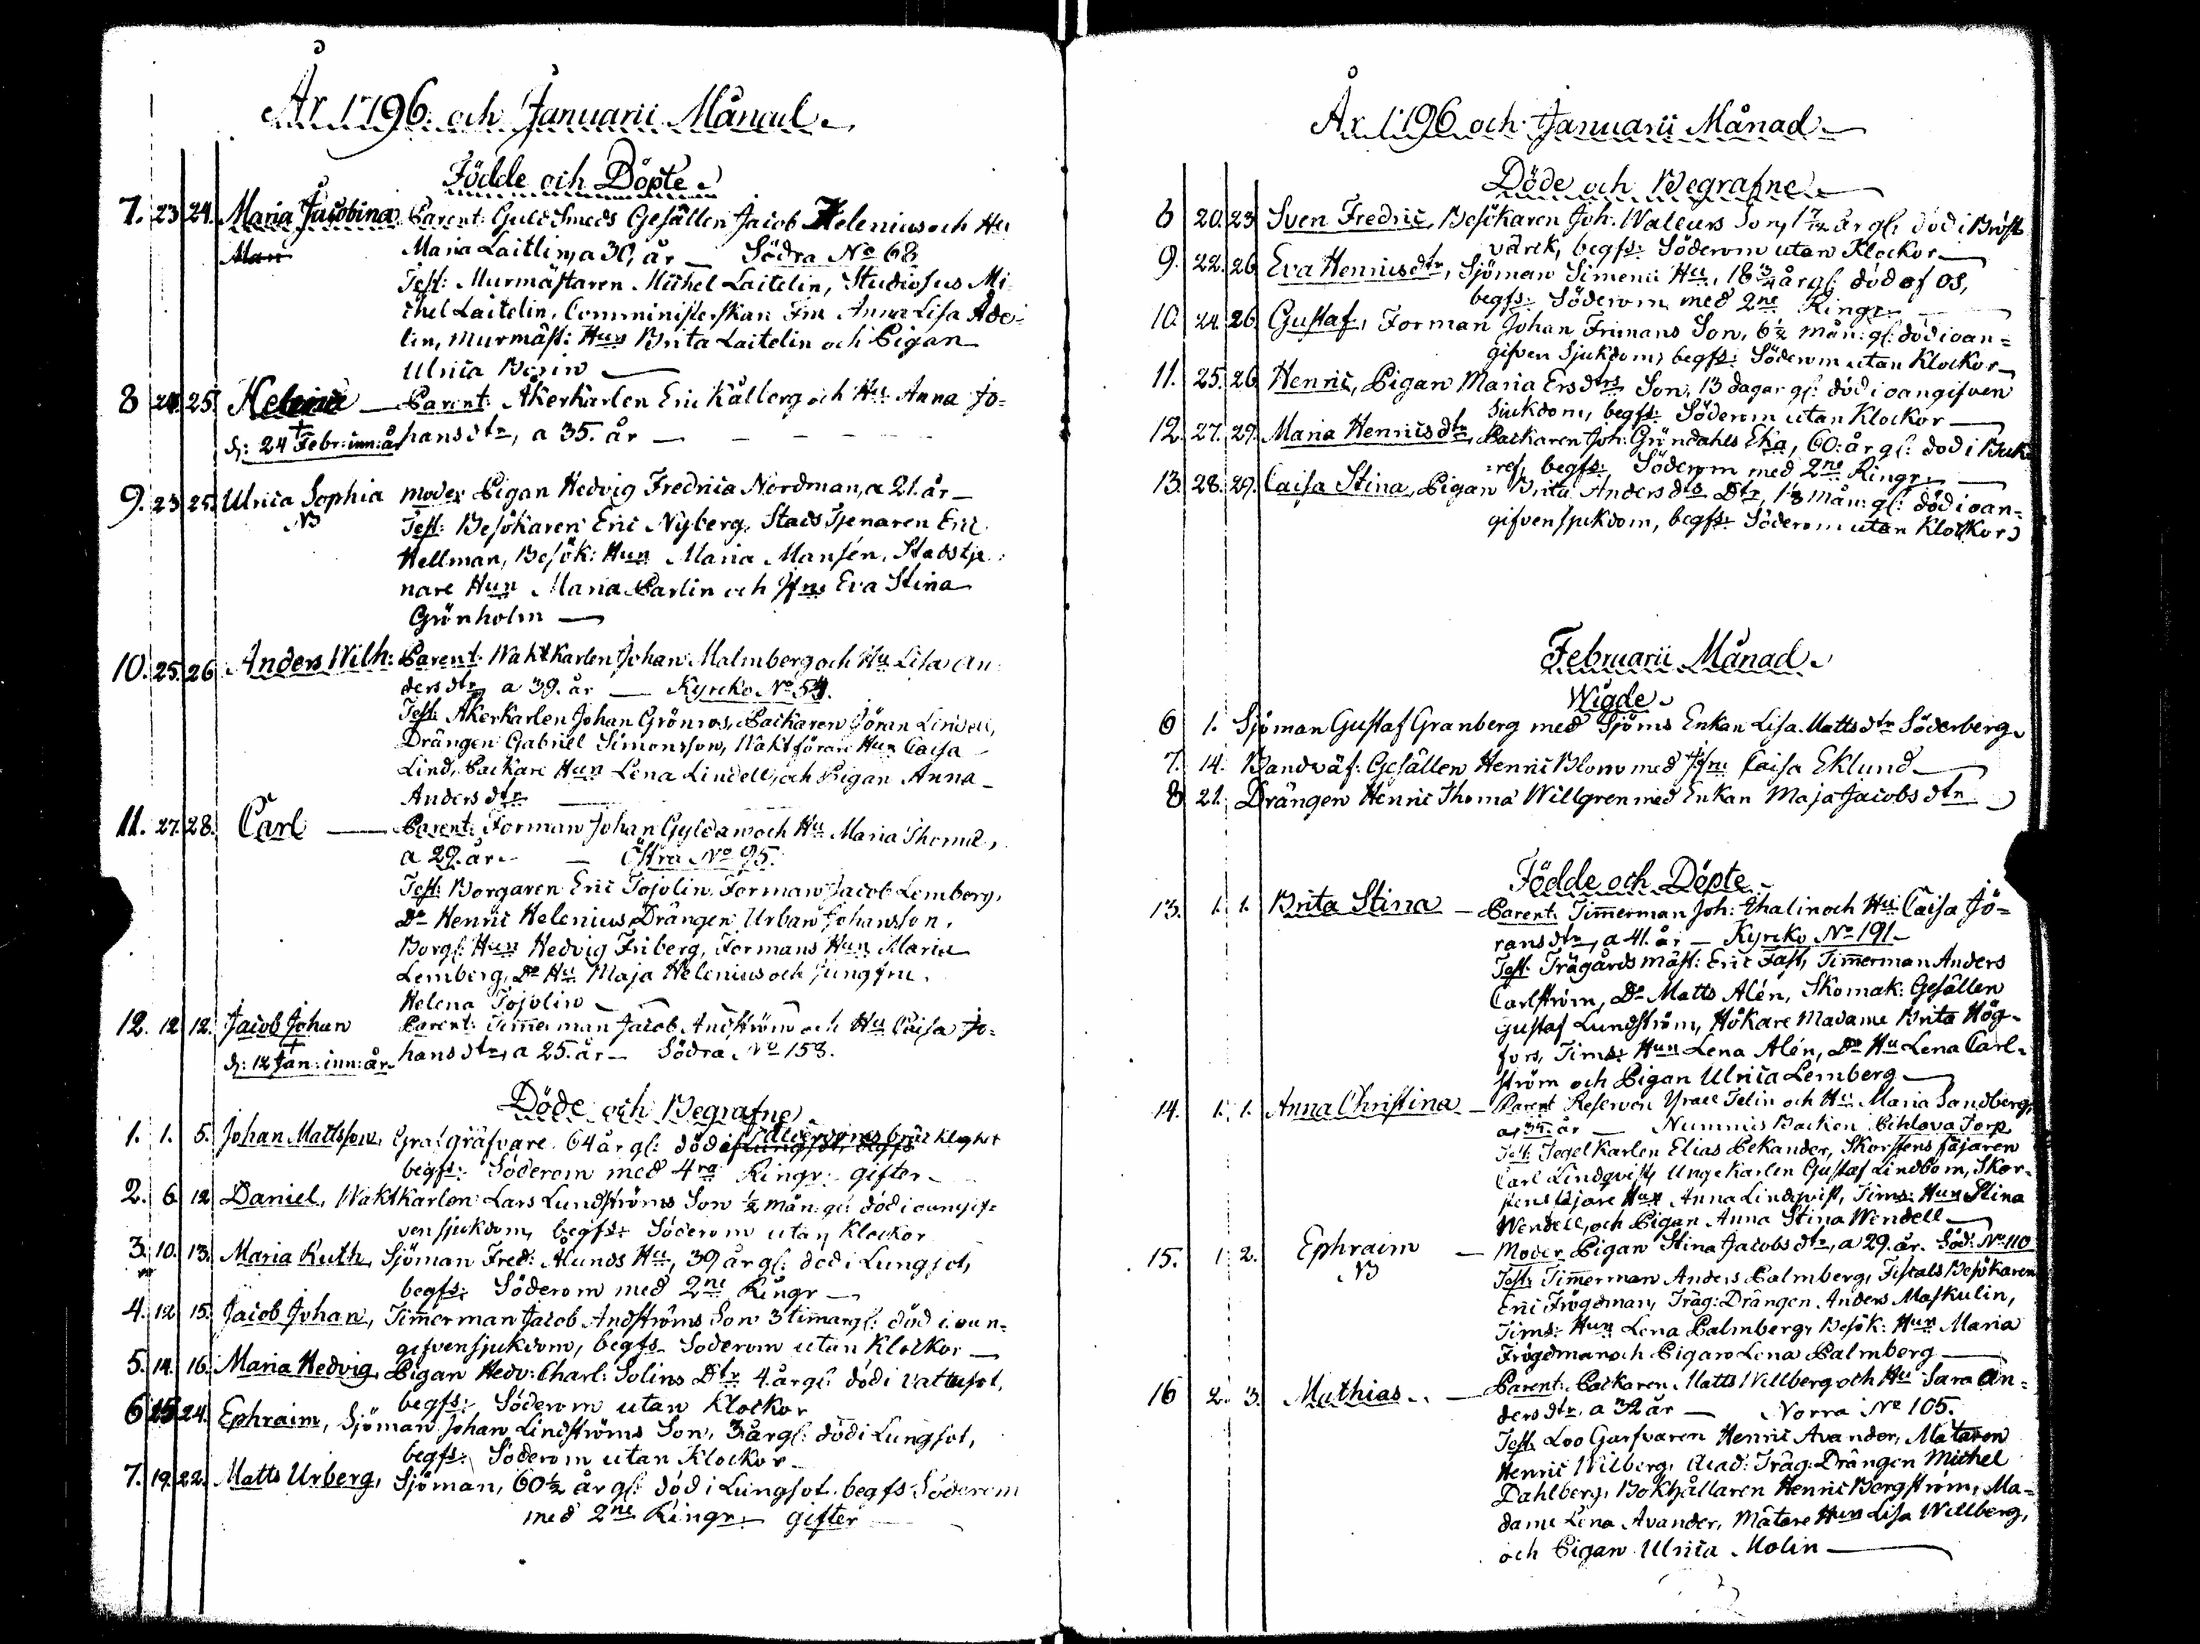 År 1796 och Januarii Månad
Födde och Döpte
7. 23 24. Maria Jacobina Parent: Guld Smeds Gesällen Jacob Helenius och Hu
Man Maria Laitlin, a 30, år — Södra No 68
Test: Murmästaren Michel Laitelin, Studiosus Mi-
chel Laitelin, Comministerskan Fru Anna Lisa Ade-
lin, Murmäst: Hun Brita Laitelin och Pigan
Ulrica Borin —
8 24 25. Helena — Parent: Åkerkarlen Eric Kålberg och Hu Anna Jo-
d: 24 Febr: inn: år hans dtr, a 35. år —
9. 23 25. Ulrica Sophia moder Pigan Hedvig Fredrica Nordman, a 21. år —
NB Test: Besökaren Eric Nyberg, Stads Tjenaren Eric
Hellman, Besök: Hun Maria Mansén, Stadstje-
nare Hun Maria Parlin och Jfn Eva Stina
Grönholm —
10. 25. 26 Anders Wilh: Parent: Waktkarlen Johan Malmberg och Hu Lisa An-
ders dtr, a 39. år — Kyrcko No 54.
Test: Åkerkarlen Johan Grönros, Packaren Jöran Lindell,
Drängen Gabriel Simonsson, Waktförare Hun Caisa
Lind, Packare Hun Lena Lindell, och Pigan Anna
Anders dtr
11. 27. 28. Carl — Parent: Forman Johan Gyldan och Hu Maria Thomæ,
a 29. år — Östra No 95.
Test: Borgaren Eric Tojolin, Forman Jacob Lemberg,
Do Henric Helenius, Drängen Urban Johansson,
Borg: Hun Hedvig Friberg, Formans Hun Maria
Lemberg, Do Hu Maja Helenius och Jungfru
Helena Tojolin
12. 12 12. Jacob Johan Parent: Timmerman Jacob Andström och Hu Caisa Jo-
d: 12 Jan: inn: år hans dtr, a 25. år — Södra No 153.
Döde och Begrafne
1. 1. 5. Johan Mattsson, 64 år gl: död i
begfs: Söderom med 4ra Ringr. gifter
2. 6 12 Daniel, Waktkarlen Lars Lundströms Son ½ mån: gl: död i oangif-
ven sjukdom, begfs: Söderom utan Klockor
3. 10. 13. Maria Ruth, Sjöman Fred: Alunds Hu, 39 år gl: död i Lungsot,
begfs: Söderom med 2ne Ringr —
4. 12 15. Jacob Johan, Timmerman Jacob Andströms Son 3 timar gl: död i oan-
gifven sjukdom, begfs Söderom utan Klockor —
5. 14. 16. Maria Hedvig, Pigan Hedv: Charl: Solins Dtr 4. år gl: död i Vattusot,
begfs: Söderom utan Klockor
6 15 24. Ephraim, Sjöman Johan Lindströms Son, 3 år gl: död i Lungsot,
begfs: Söderom utan Klockor
7. 19 22. Matts Urberg, Sjöman, 60½ år gl: död i Lungsot. begfs Söderom
med 2ne Ringr — gifter
År 1796 och Januarii Månad
Döde och Begrafne
8 20. 23 Sven Fredric, Besökaren Joh: Waleurs Son, 1 7/12 år gl: död i Bröst
värck, begfs: Söderom utan Klockor
9. 22. 26 Eva Henricsdtr, Sjöman Simenii Hu, 18¾ år gl: död af OS,
begfs: Söderom med 2ne Ringr
10. 24. 26 Gustaf, Forman Johan Frimans Son, 6½ mån: gl: död i oan=
gifven Sjukdom, begfs: Söderom utan Klockor
11. 25. 26 Henric, Pigan Maria Ersdtrs Son, 13 dagar gl: död i oangifven
sjukdom, begfs: Söderom utan Klockor —
12. 27. 29. Maria Henricsdtr, Packaren Joh: Gröndahls Eka, 60: år gl: död i Buk
ref, begfs: Söderom med 2ne Ringr
13. 28. 29. Caisa Stina, Pigan Brita Andersdts Dtr, 1⅓ mån: gl: död i oan=
gifven sjukdom, begfs: Söderom utan Klockor
Februarii Månad
Wigde
6 1. Sjöman Gustaf Granberg med Sjöms Enkan Lisa Mattsdtr Söderberg
7. 14. Bandväf: Gesällen Henric Blom med Jfn Caisa Eklund
8 21. Drängen Henric Thoma Willgren med Enkan Maja Jacobs dtr
Födde och Döpte
13. 1. 1. Brita Stina — Parent: Timmerman Joh: Thalin och Hu Caisa Jö=
rans dtr, a 41. år — Kyrcko No 191
Test: Trägårds mäst: Eric Fast, Timmerman Anders
Carlström, Do Matts Alén, Skomak: Gesällen
Gustaf Lundström, Hökare Madame Brita Hög-
fors, Tims: Hun Lena Alén, Do Hu Lena Carl-
ström och Pigan Ulrica Lemberg —
14. 1. 1. Anna Christina — Parent Reserven Ysrael Telin och Hu Maria Sandberg,
a 35. år — Nummis Backen Torp
Test: Tegelkarlen Elias Pekander, Skorstens fäjaren
Carl Lindqvist, Unge Karlen Gustaf Lindbom, Skor-
stens fäjare Hun Anna Lindqvist, Tims: Hun Stina
Wendell, och Pigan Anna Stina Wendell
15. 1. 2. Ephraim — Moder Pigan Stina Jacobs dtr, a 29. år. Söd: No 110
NB Test: Timmerman Anders Palmberg, Fiscals Besökaren
Eric Frögdman, Träg: Drängen Anders Maskulin,
Tims: Hun Lena Palmberg, Besök: Hun Maria
Frögdman och Pigan Lena Palmberg —
16 2. 3. Mathias — Parent: Packaren Matts Willberg och Hu Sara An=
ders dtr, a 32 år — Norra No 105.
Test: Loo Garfvaren Henric Avander, Mätaren
Henric Wilberg, Acad: Träg: Drängen Michel
Dahlberg, Bokhållaren Henric Borgström, Ma=
dame Lena Avander, Mätare Hun Lisa Willberg,
och Pigan Ulrica Molin